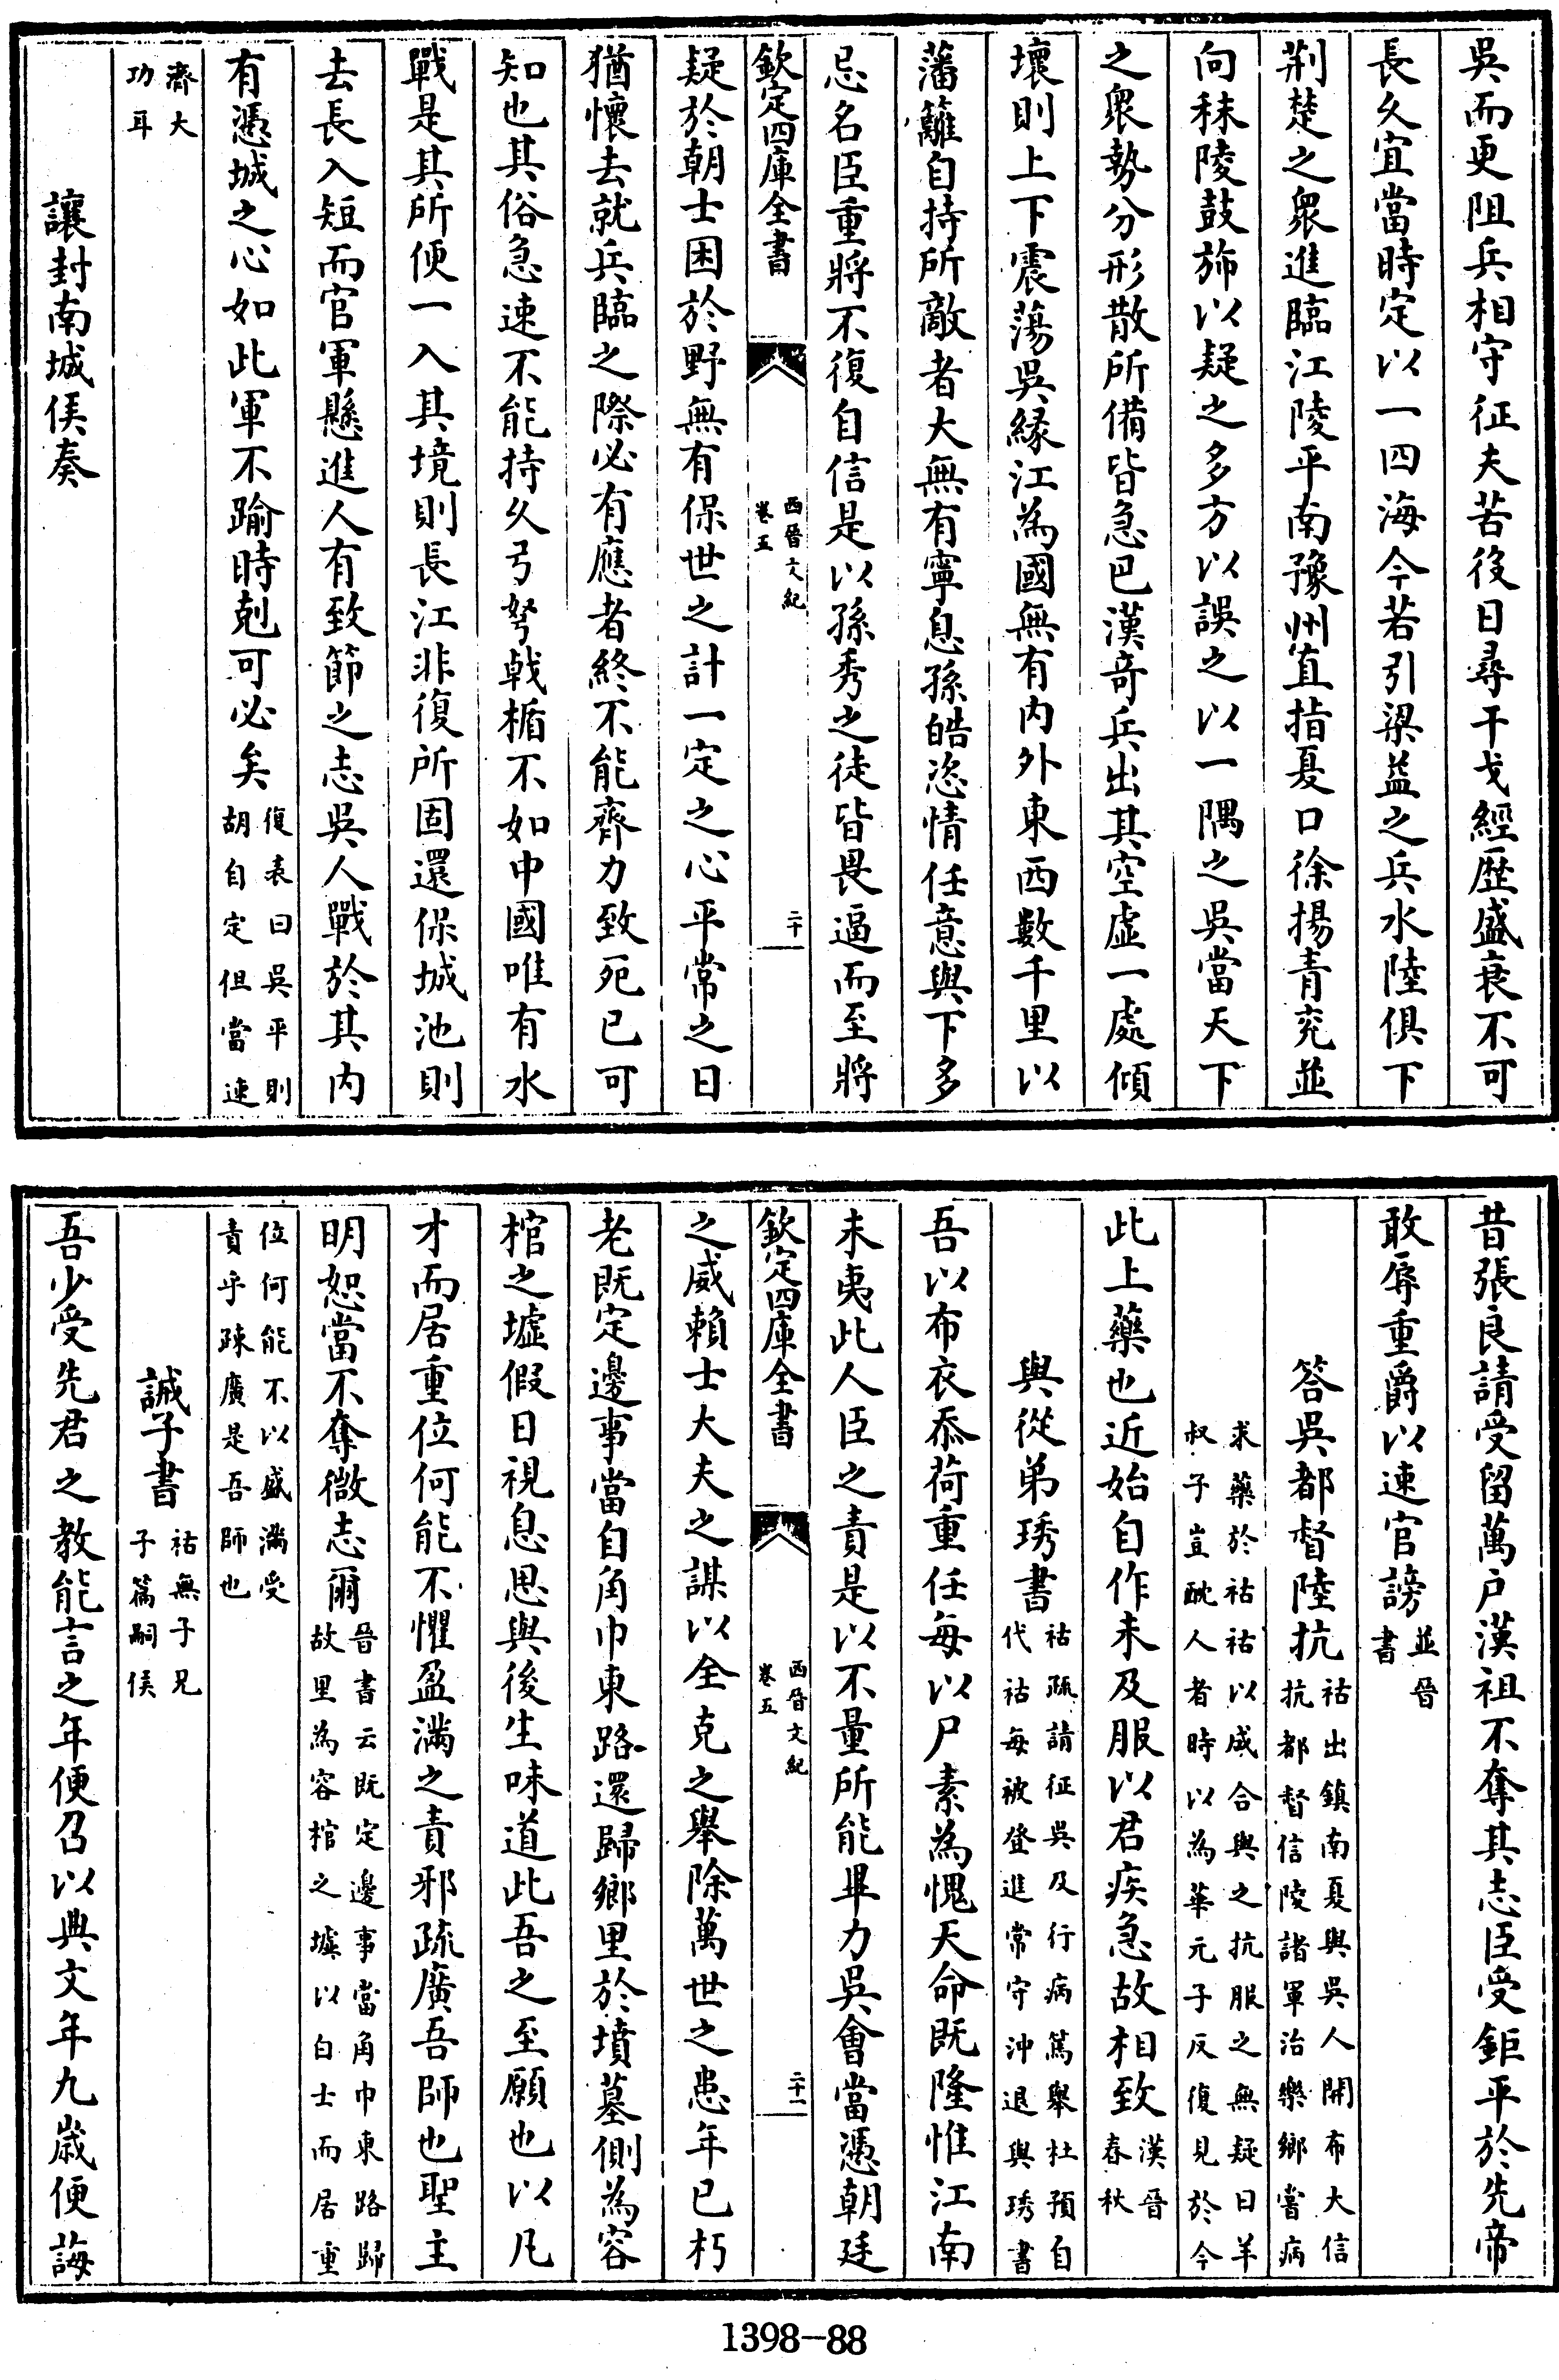 吳而更阻兵相守征夫苦役日尋干戈經歷盛衰不可
長久宜當時定以一四海今若引梁益之兵水陸俱下
荆楚之衆進臨江陵平南豫州直指夏口徐揚青兖並
向秣陵鼓斾以疑之多方以誤之以一隅之吳當天下
之衆勢分形散所備皆急巴漢奇兵出其空虛一處傾
壞則上下震蕩吳緣江為國無有内外東西數千里以
藩籬自持所敵者大無有寧息孫皓恣情任意與下多
忌名臣重將不復自信是以孫秀之徒皆畏逼而至將
欽定四庫全書
西晉文紀
卷五
二十
疑於朝士困於野無有保世之計一定之心平常之日
猶懷去就兵臨之際必有應者終不能齊力致死已可
知也其俗急速不能持久弓弩戟楯不如中國唯有水
戰是其所便一入其境則長江非復所固還保城池則
去長入短而官軍懸進人有致節之志吳人戰於其内
有憑城之心如此軍不踰時剋可必矣
復表曰吳平則
胡自定但當速
濟大
功耳
讓封南城侯奏
昔張良請受留萬户漢祖不奪其志臣受鉅平於先帝
敢辱重爵以速官謗
並晉
書
答吳都督陸抗
祜出鎮南夏與吳人開布大信
抗都督信陵諸軍治樂鄉嘗病
求藥於祜祜以成合與之抗服之無疑曰羊
叔子豈酖人者時以為華元子反復見於今
此上藥也近始自作未及服以君疾急故相致
漢晉
春秋
與從弟琇書
祜疏請征吳及行病篤舉杜預自
代祜每被登進常守沖退與琇書
吾以布衣忝荷重任每以尸素為愧天命既隆惟江南
未夷此人臣之責是以不量所能畢力吳會當憑朝廷
欽定四庫全書
西晉文紀
卷五
二十一
之威賴士大夫之謀以全克之舉除萬世之患年已朽
老既定邊事當自角巾東路還歸鄉里於墳墓側為容
棺之墟假日視息思與後生味道此吾之至願也以凡
才而居重位何能不懼盈滿之責邪疏廣吾師也聖主
明恕當不奪微志爾
晉書云既定邊事當角巾東路歸
故里為容棺之墟以白士而居重
位何能不以盛滿受
責乎疎廣是吾師也
誡子書
祜無子兄
子篇嗣侯
吾少受先君之教能言之年便召以典文年九歲便誨
1398—88